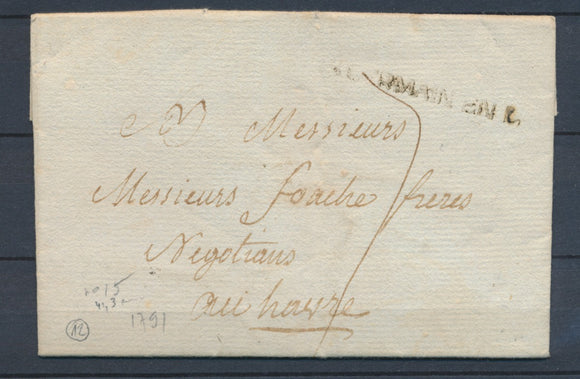 RMAIN EN L
A Messieurs
Messieurs foache freres
Negotians
au havre
1791
12